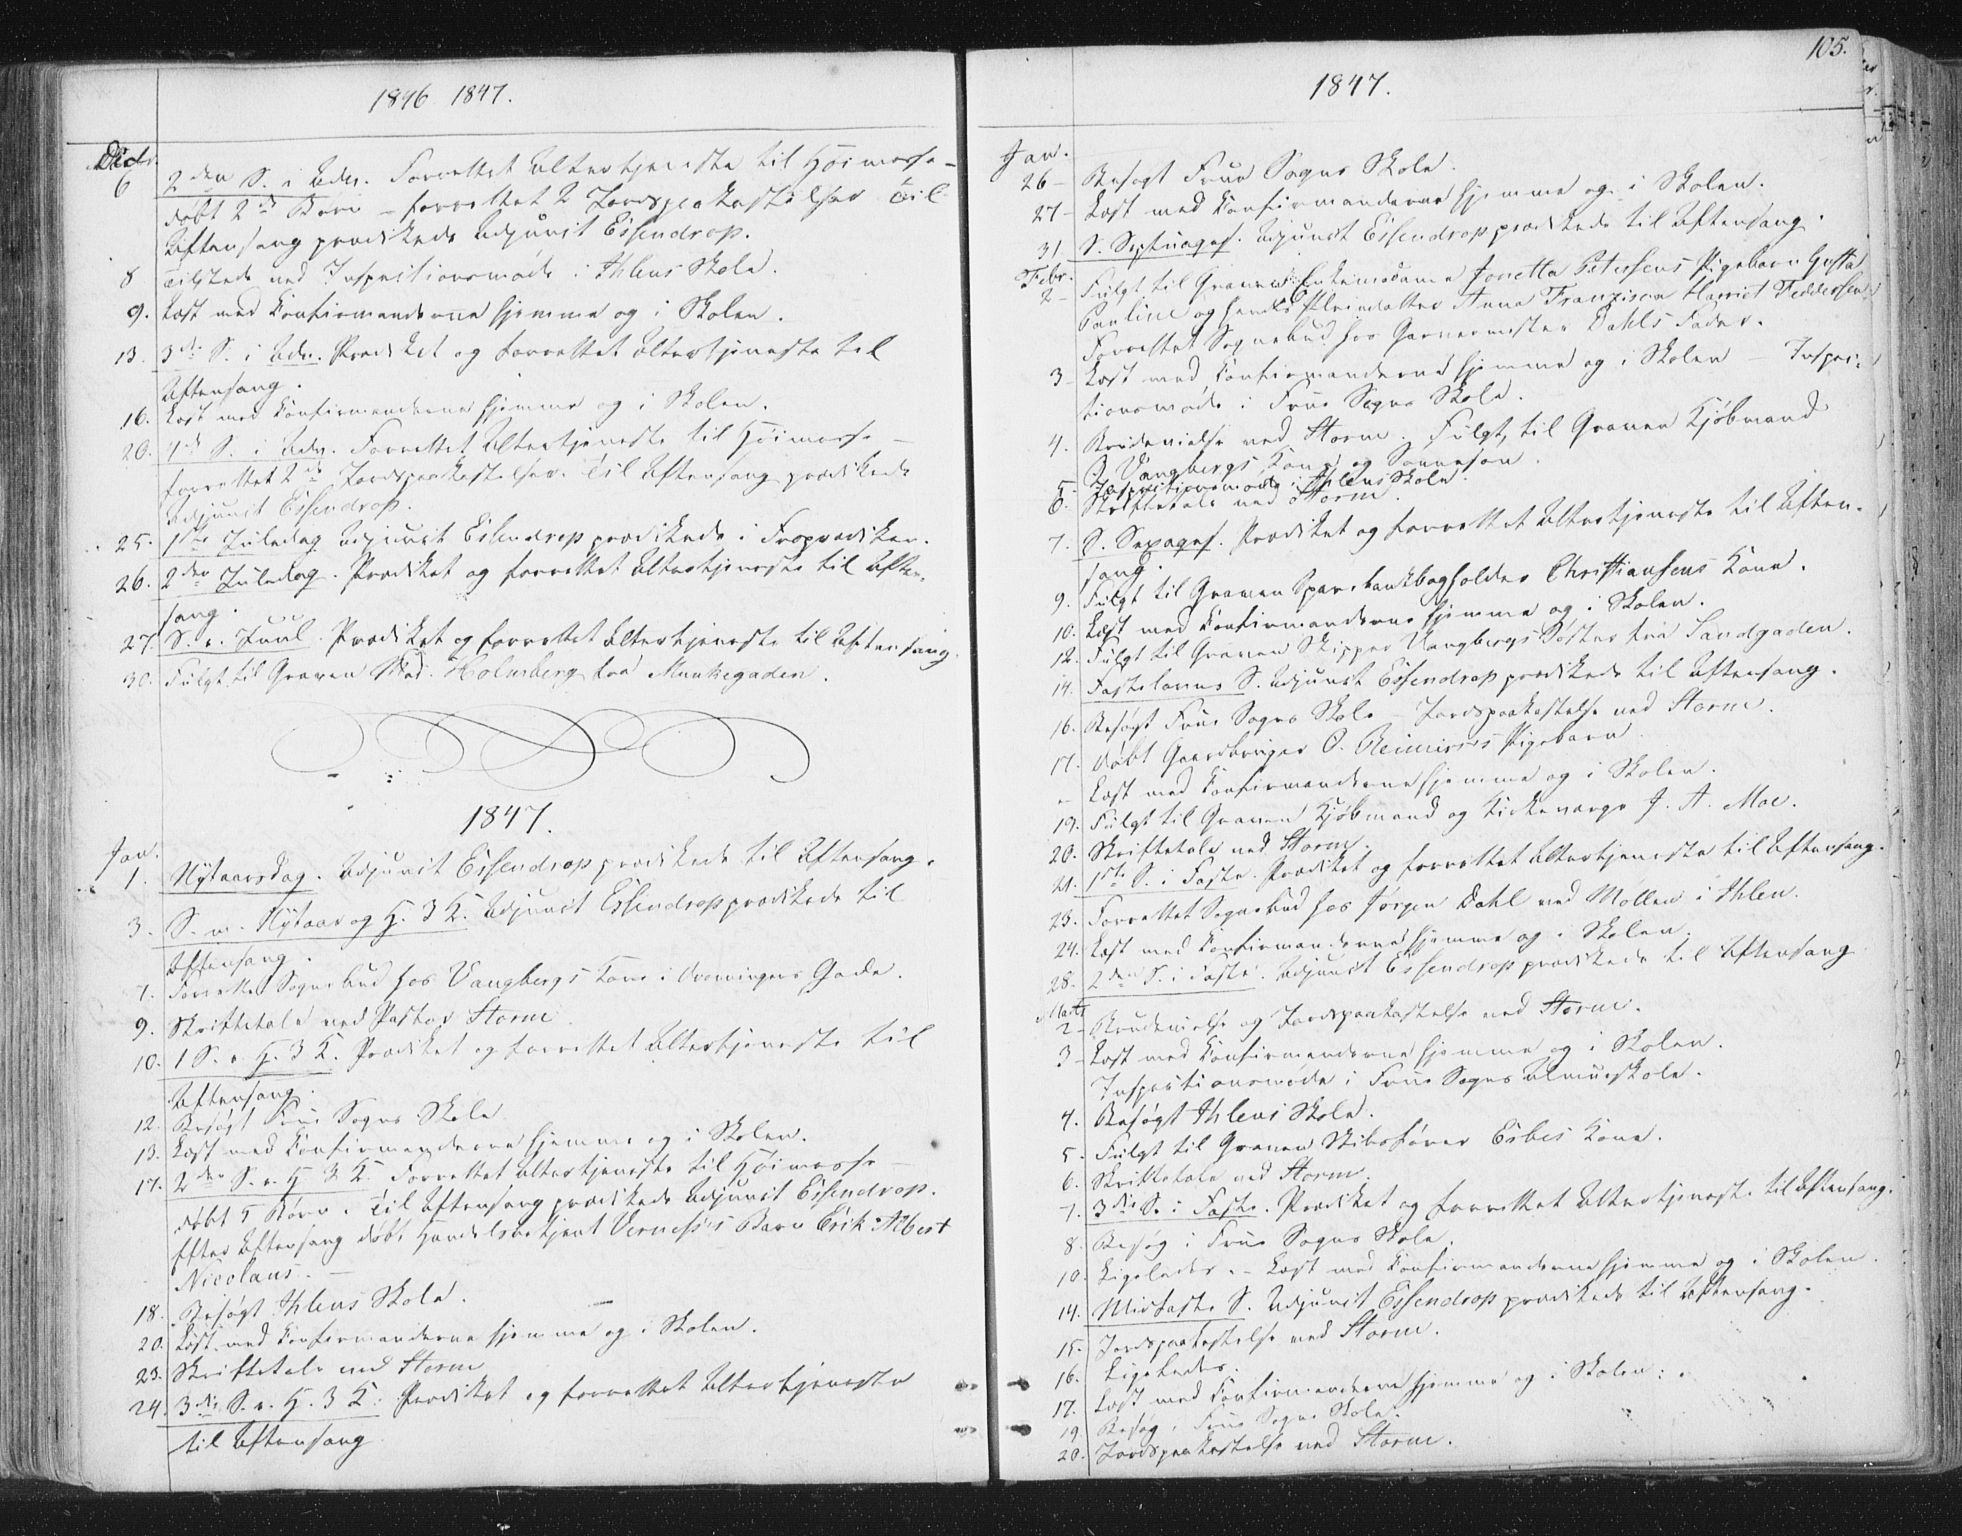 1846 1847.
Decbr.
6 2den S. i Adv. Forrettet Altertjeneste til Høimesse –
døbt 2de Børn – forrettet 2 Jordspaakastelser Til
Aftensang prædikede Adjunct Essendrop.
8 Tilstede ved Inspectionsmøde i Ihlens Skole.
9. Læst med Confirmanderne hjemme og i Skolen.
13. 3die S. i Adv. Prædiket og forrettet Altertjeneste til
Aftensang.
16. Læst med Confirmanderne hjemme og i Skolen.
20. 4de S. i Adv. Forrettet Altertjeneste til Høimesse –
forrettet 2de Jordspaakastelser. Til Aftensang prædikede
Adjunct Essendrop.
25. 1ste Juledag Adjunct Essendrop prædikede i Froprædiken.
26. 2den Juledag. Prædiket og forrettet Altertjeneste til Aften-
sang.
27. S. e. Juul. Prædiket og forrettet Altertjeneste til Aftensang.
30. Fulgt til Graven Mad. Holmberg fra Munkegaden.
1847.
Jan.
1. Nytaarsdag. Adjunct Essendrop prædikede til Aftensang.
3. S. m. Nytaar og H. 3 K. Adjunct Essendrop prædikede til
Aftensang.
7. Forrettet Sognebud hos Vangbergs Kone i Dronningens Gade.
9. Skriftetale ved Pastor Storm
10. 1 S. e. H. 3 K. Prædiket og forrettet Altertjeneste til
Aftensang.
12. Besøgt Frue Sogns Skole
13. Læst med Confirmanderne hjemme og i Skolen.
17. 2den S. e. H 3 K. Forrettet Altertjeneste til Høimesse –
døbt 5 Børn. Til Aftensang prædikede Adjunct Essendrop.
Efter Aftensang døbt Handelsbetjent Vernesses Barn Erik Albert
Nicolaus. –
18. Besøgt Ihlens Skole.
20. Læst med Confirmanderne hjemme og i Skolen.
23. Skriftetale ved Storm
24. 3die S. e. H. 3 K. Prædiket og forrettet Altertjeneste
til Aftensang
105.
1847.
Jan.
26 – Besøgt Frue Sogns Skole.
27 – Læst med Confirmanderne hjemme og i Skolen.
31 S. Septuages. Adjunct Essendrop prædikede til Aftensang.
Febr.
2 – Fulgt til Graven Enkemadame Jonetta Petersens Pigebarn Gusta
Pauline og hendes Pleiedatter Anna Franzisca Harriet Feddersen.
Forrettet Sognebud hos Garvermester Dahls Fader.
3 – Læst med Confirmanderne hjemme og i Skolen – Inspec-
tionsmøde i Frue Sogns Skole.
4. Brudevielse ved Storm. Fulgt til Graven Kjøbmand
Vangbergs Kone og Sønnesøn.
5. Inspectionsmøde i Ihlens Skole.
6. Skriftetale ved Storm.
7. S. Sexages. Prædiket og forrettet Altertjeneste til Aften-
sang.
9. Fulgt til Graven Sparebankbogholder Christiansens Kone.
10. Læst med Confirmanderne hjemme og i Skolen.
12. Fulgt til Graven Skipper Vangbergs Søster fra Sandgaden.
14. Fastelavns S. Adjunct Essendrop prædikede til Aftensang.
16. Besøgt Frue Sogns Skole – Jordspaakastelse ved Storm.
17. Døbt Gaardbruger O. Reimirses Pigebarn
– Læst med Confirmanderne hjemme og i Skolen.
19. Fulgt til Graven Kjøbmand og Kirkeværge J. A. Moe.
20. Skriftetale ved Storm.
21. 1ste S. i Faste. Prædiket og forrettet Altertjeneste til Aftensang.
23. Forrettet Sognebud hos Jørgen Dahl ved Møllen i Ihlen.
24. Læst med Confirmanderne hjemme og i Skolen.
28. 2den S. i Faste. Adjunct Essendrop prædikede til Aftensang
Marts
2 – Brudevielse og Jordspaakastelse ved Storm.
3 – Læst med Confirmanderne hjemme og i Skolen.
Inspectionsmøde i Frue Sogns Almueskole.
4. Besøgt Ihlens Skole.
5. Fulgt til Graven Skibsfører Esbes Kone.
6. Skriftetale ved Storm.
7. 3die S. i Faste. Prædiket og forrettet Altertjeneste til Aftensang.
8. Besøg i Frue Sogns Skole.
10. Ligeledes. – Læst med Confirmanderne hjemme og i Skolen.
14. Midfaste S. Adjunct Essendrop prædikede til Aftensang.
15. Jordspaakastelse ved Storm.
16. Ligeledes.
17. Læst med Confirmanderne hjemme og i Skolen.
19. Besøg i Frue Sogns Skole.
20. Jordspaakastelse ved Storm.